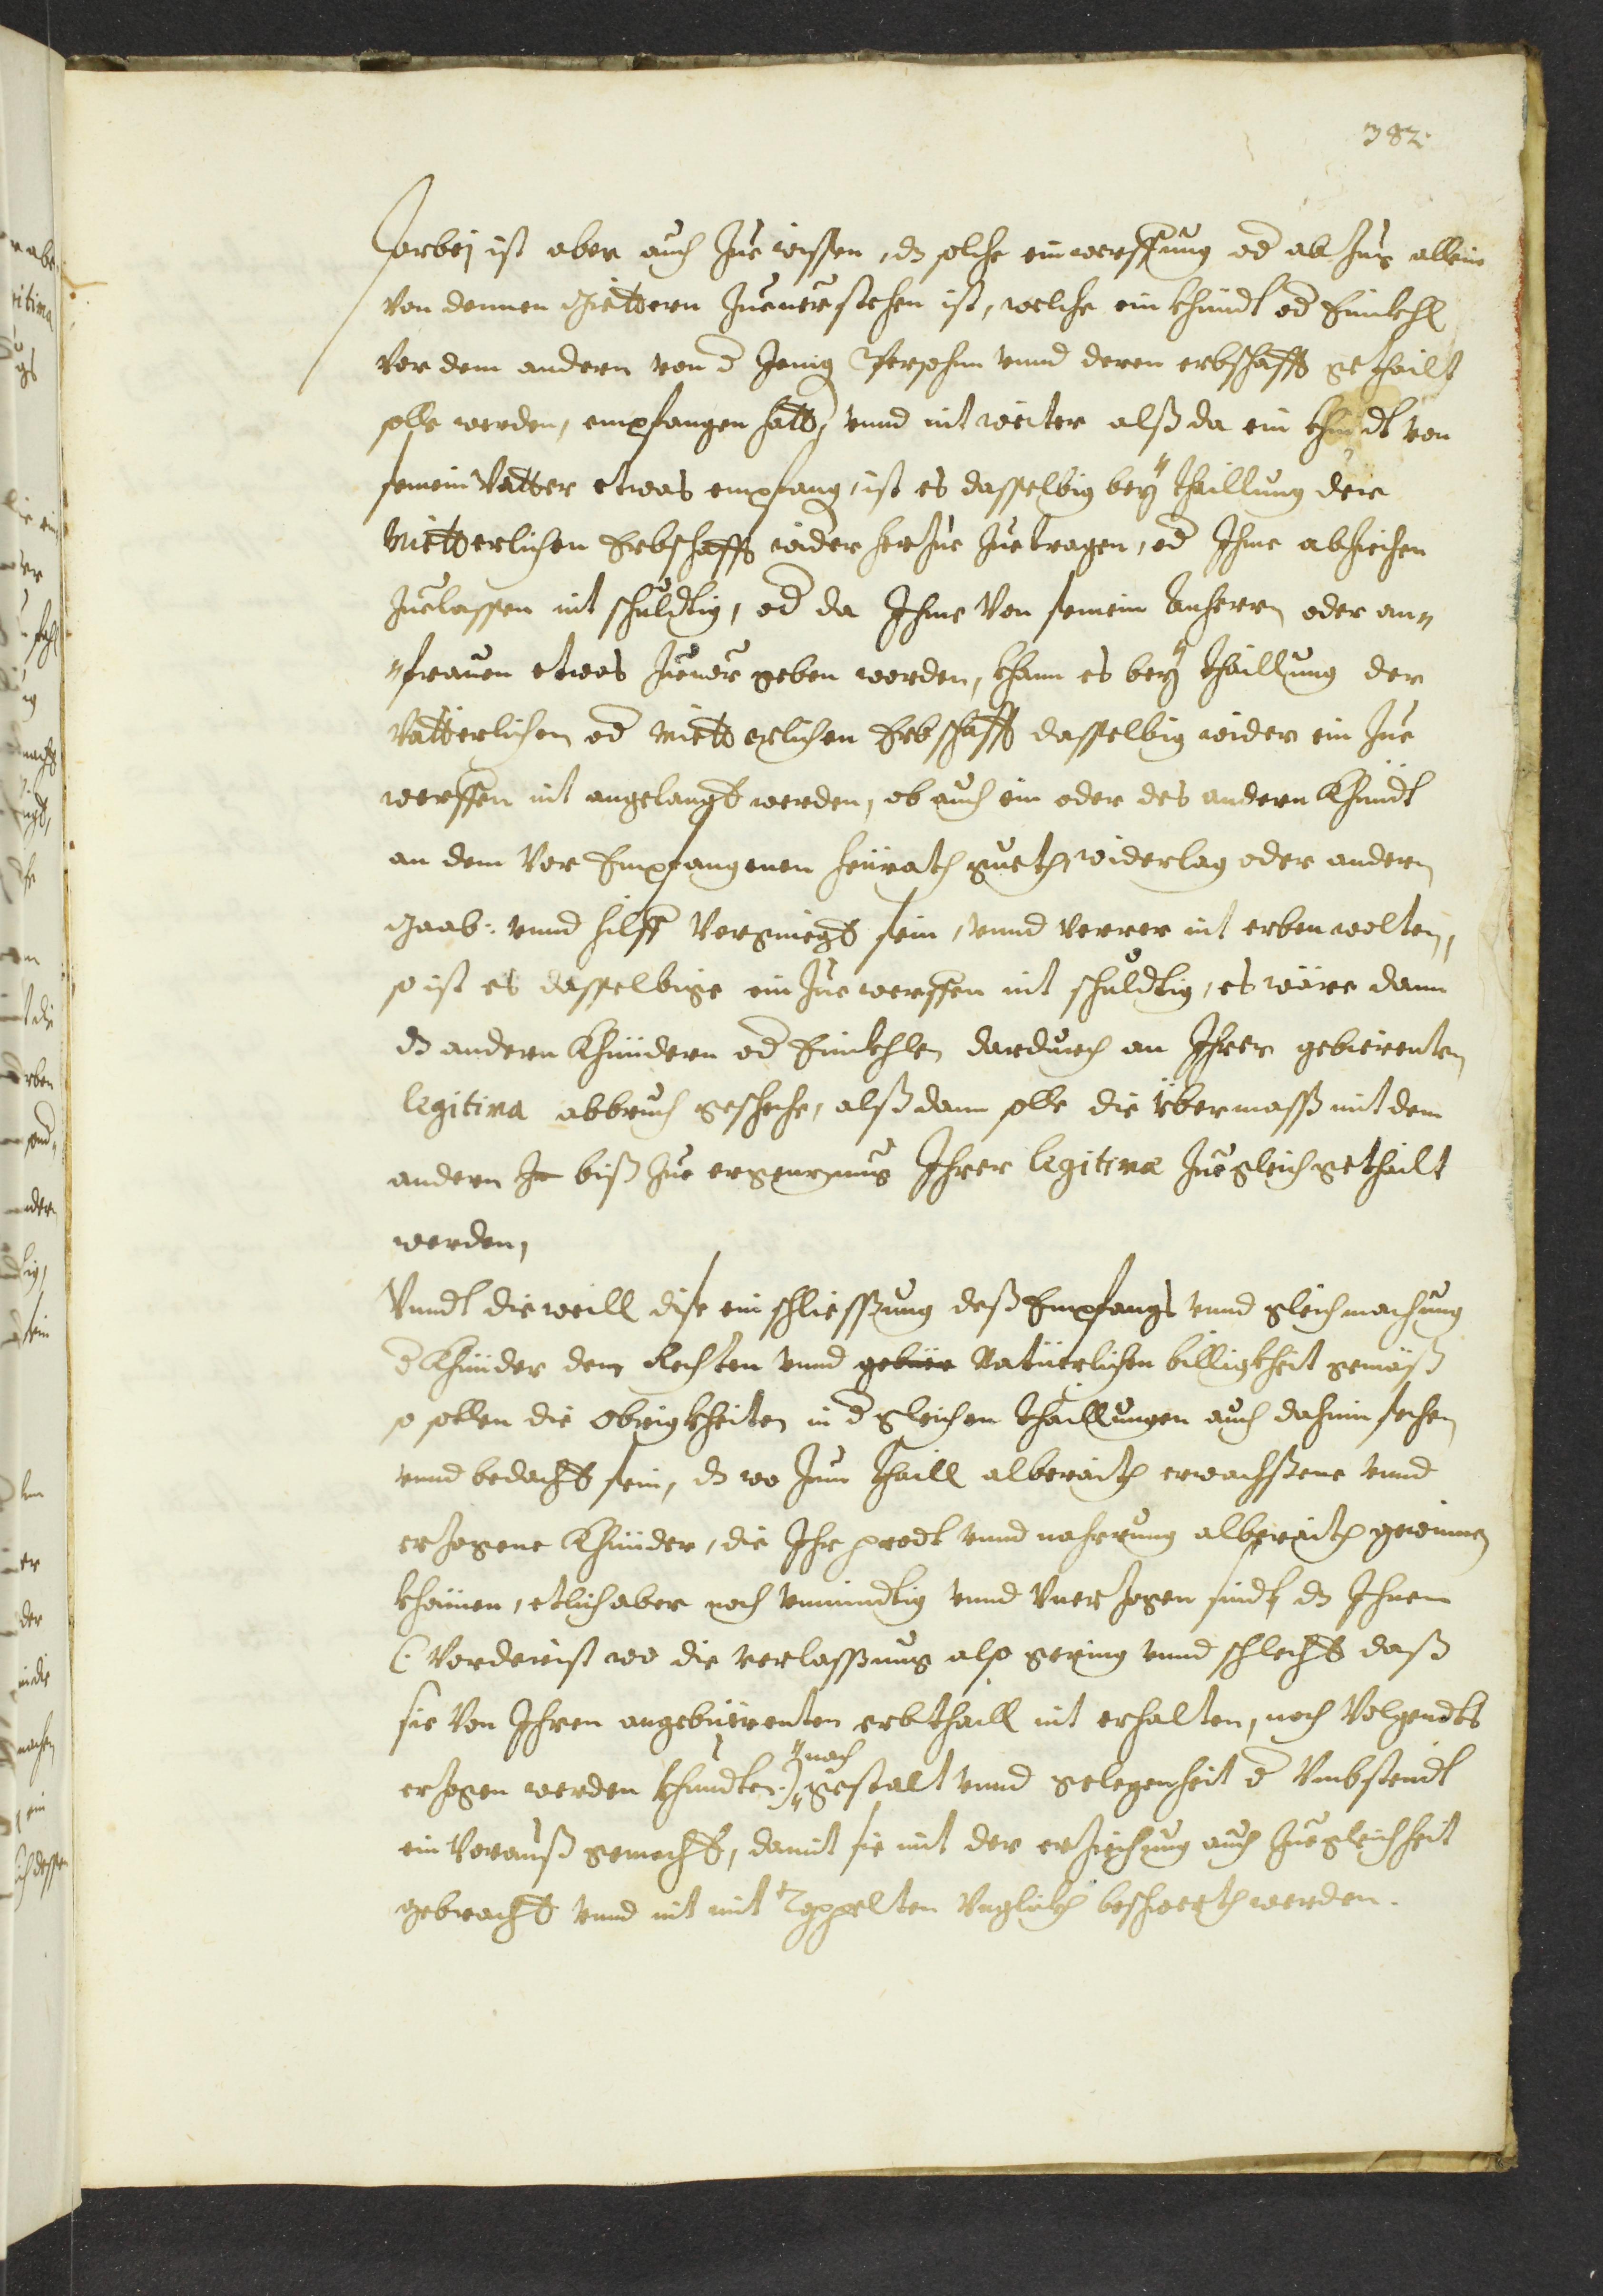 382.
Hierbej ist aber auch Zue wissen, dz solche einwerffung od abzug allein
von dennen Giettern Zueuerstehen ist, welche ein Khindt od Einikhl
vor dem andern von d Jenig Persohn vnnd deren erbschafft gethailt
solle werden, empfangen hatt, vnnd nit weiter alß da ein khindt von
seinem Vatter etwas empfang, ist es dasselbig bey thaillung der
Mietterlichen Erbschafft wider herzue Zuetragen, od Ihme abziechen
Zuelassen nit schuldtig, od da Ihme von seinem Anherrn oder an„
„frauen etwas Zueuor geben worden, khann es bey thaillung der
Vätterlichen od Mietterlichen Erbschafft dasselbig wider ein Zue
werffen nit angelangt werden, ob auch ein oder das andern Khindt
an dem vor Empfangenen heürath gueth, widerlag oder andern
Gaab: vnnd hilff Vergniegt sein, vnnd verrer nit erben wolten,
so ist es dasselbige ein Zue werffen nit schuldtig, es wäre dann
dz andern Khindern od Einikhlen dardurch an Ihrer gebierenten
legitima abbruch geschehe, alß dann solle die übermaß mit dem
andern Zu biß Zue ergentzung Ihrer legitimæ Zuegleich gethailt
werden,
Vnndt dieweill dise einschliessung deß Empfangs vnnd gleichmachung
d Khinder dem Rechten vnnd gebüre Natürlichen billigkheit gemäß
so sollen die Obrigkheiten in d gleichen thaillungen auch dahin sehen
vnnd bedacht sein, dz wo Zum thaill alberaith erwachßene vnnd
erzogene Khinder, die Ihr prodt vnnd nahrung alberaith gewinnen
khönen, etlich aber noch vnmindtig vnnd vnerzogen sindt dz Ihnen
(: vorderist wo die verlassung also gering vnnd schlecht daß
sie von Ihren angebürenten erbthaill nit erhalten, noch volgendts
erzogen werden khundten :) „nach„ gestalt vnnd gelegenheit d Vmbstendt
ein Vorauß gemacht, damit sie mit der erziechung auch Zuegleichheit
gebracht vnnd nit mit Toppelten Vnglickh beschwerth werden.